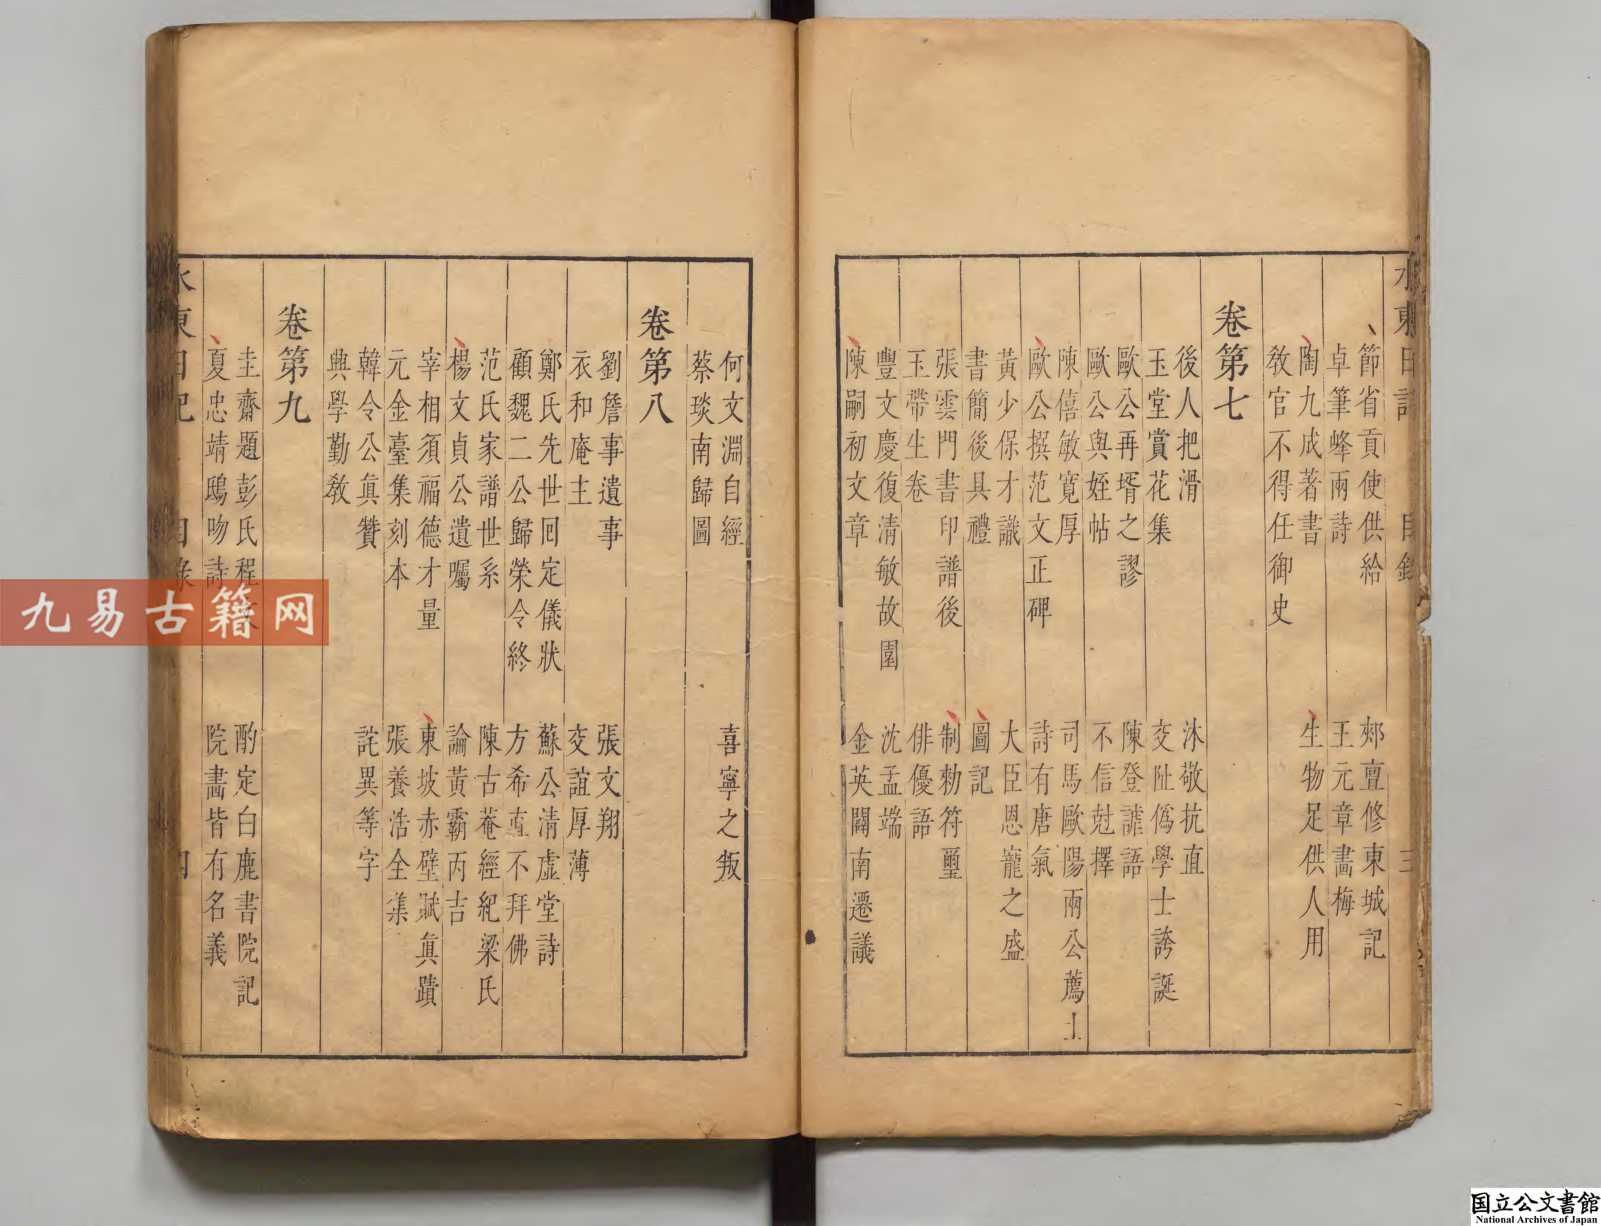 水東日記 目錄 三
節省貢使供給 郟亶修東城記
卓筆峰兩詩 王元章畫梅
陶九成著書 生物足供人用
敎官不得任御史
卷第七
後人把滑 沐敬抗直
玉堂賞花集 交阯僞學士誇誕
歐公再壻之謬 陳登謔語
歐公與姪帖 不信尅擇
陳僖敏寛厚 司馬歐陽兩公薦士
歐公撰范文正碑 詩有唐氣
黃少保才識 大臣恩寵之盛
書簡後具禮 圖記
張雲門書印譜後 制勑符璽
玉帶生卷 俳優語
豐文慶復淸敏故園 沈孟端
陳嗣初文章 金英闢南遷議
何文淵自經 喜寧之叛
蔡琰南歸圖
卷第八
劉詹事遺事 張文翔
衣和庵主 交誼厚薄
鄭氏先世回定儀狀 蘇公清虛堂詩
顧魏二公歸榮令終 方希直不拜佛
范氏家譜世系 陳古菴經紀梁氏
楊文貞公遺囑 論黃霸丙吉
宰相須福德才量 東坡赤壁賦眞蹟
元金臺集刻本 張養浩全集
韓令公眞贊 詫異等字
典學勤敎
卷第九
圭齋題彭氏程 酌定白鹿書院記
夏忠靖鴟吻詩 院畵皆有名義
水東日記 目錄 四
九易古籍网
国立公文書館
National Archives of Japan